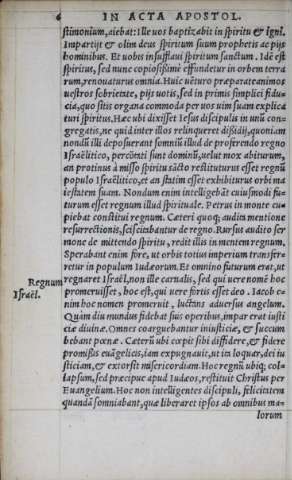 6 IN ACTA APOSTOL.
stimonium, aiebat: Ille uos baptizabit in spiritu & igni.
Impartijt & olim deus spiritum suum prophetis ac pijs
hominibus. Et uobis insufflaui spiritum sanctum. Idē est
spiritus, sed nunc copiosißimè effundetur in orbem terra
rum, renouaturus omnia. Huic uēturo præparate animos
uestros sobrietate, pijs uotis, sed in primis simplici fidu-
cia, quo sitis organa commoda per uos uim suam explica
turi spiritus. Hæc ubi dixisset Iesus discipulis in unū con-
gregatis, ne quid inter illos relinqueret dißidij, quoniam
nondū illi deposuerant somniū illud de proferendo regno
Israëlitico, percūtati sunt dominū, uelut mox abiturum,
an protinus à misso spiritu sācto restituturus esset regnū
populo Israëlitico, et an statim esset exhibiturus orbi ma
iestatem suam. Nondum enim intelligebāt cuiusmodi fu-
turum esset regnum illud spirituale. Petrus in monte cu-
piebat constitui regnum. Cæteri quoq; audita mentione
resurrectionis, sciscitabantur de regno. Rursus audito ser
mone de mittendo spiritu, redit illis in mentem regnum.
Sperabant enim fore, ut orbis totius imperium transfer-
retur in populum Iudæorum. Et omnino futurum erat, ut
Regnum regnaret Israël, non ille carnalis, sed qui uere nomē hoc
Israël. promeruisset, hoc est, qui uere fortis esset deo. Iacob e-
nim hoc nomen promeruit, luctans aduersus angelum.
Quàm diu mundus fidebat suis operibus, impar erat iusti
ciæ diuinæ. Omnes coarguebantur iniusticiæ, & succum
bebant pœnæ. Cæterū ubi cœpit sibi diffidere, & fidere
promißis euāgelicis, iam expugnauit, ut ita loquar, dei iu
sticiam, & extorsit misericordiam. Hoc regnū ubiq; col-
lapsum, sed præcipue apud Iudæos, restituit Christus per
Euangelium. Hoc non intelligentes discipuli, felicitatem
quandā somniabant, quæ liberaret ipsos ab omnibus ma-
lorum